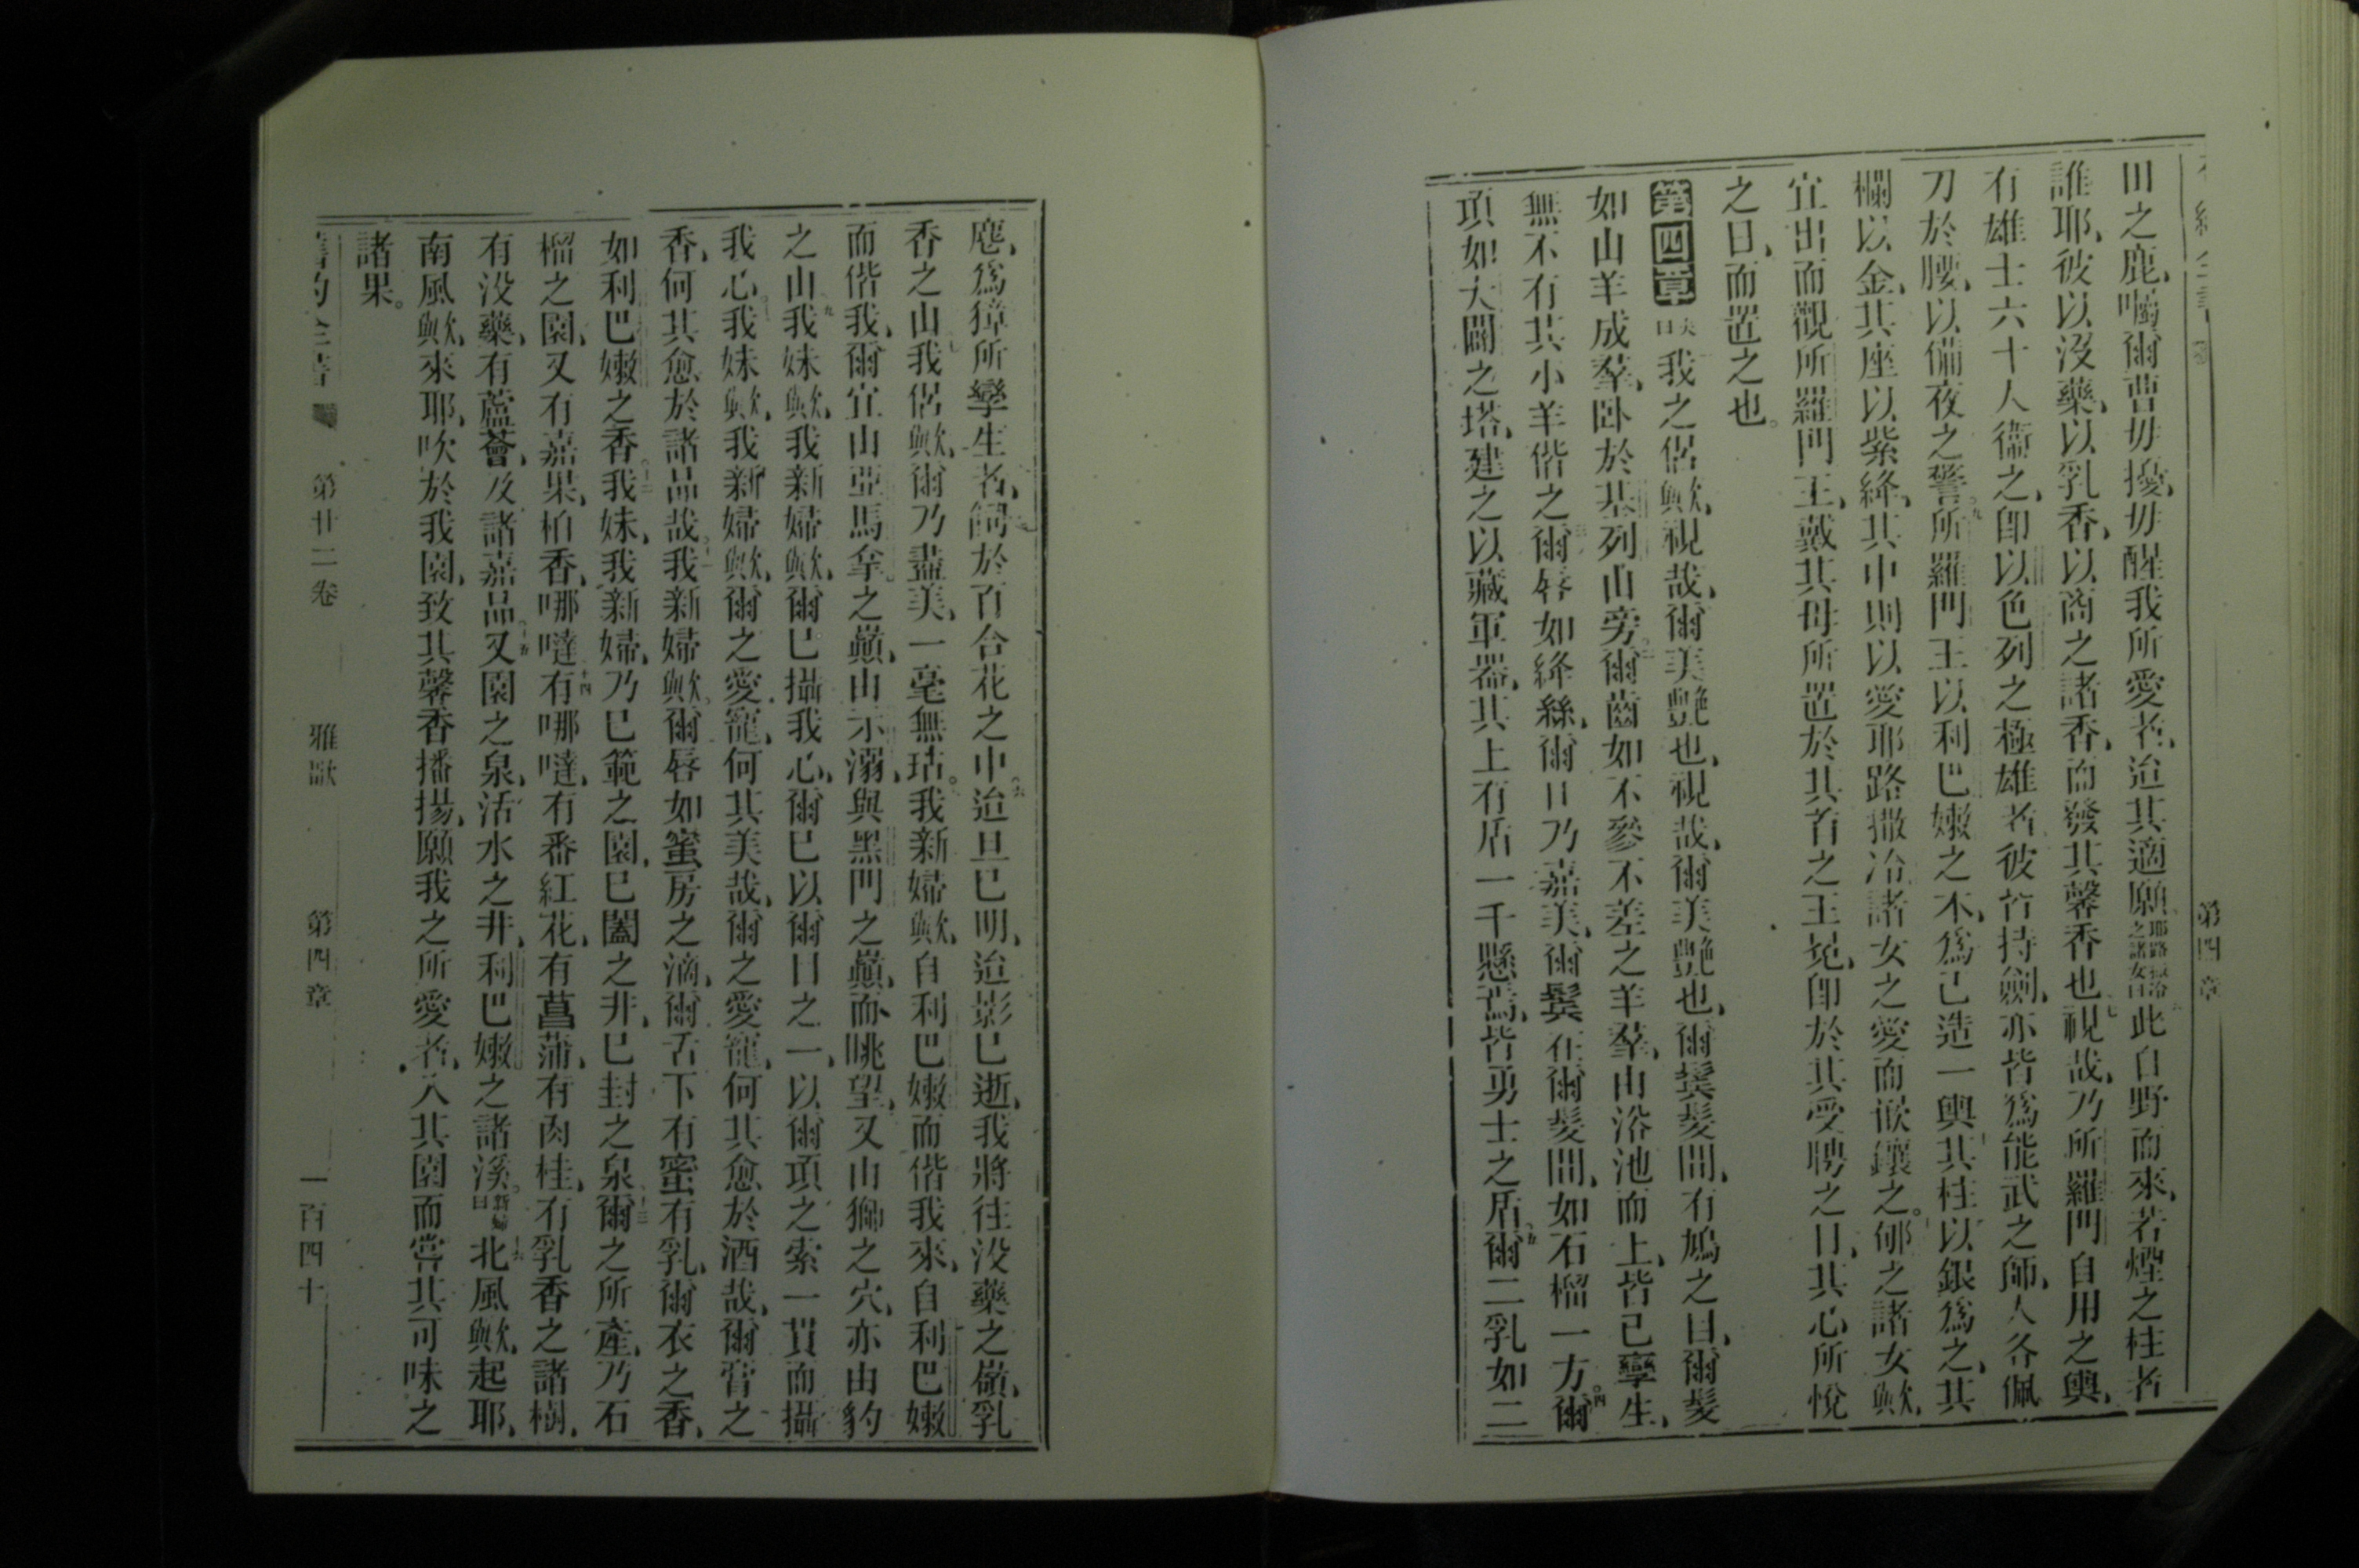 第四章
田之鹿、囑爾曹毋擾、毋醒我所愛者、迨其適願、耶路撒冷之諸女曰此自野而來、若煙之柱者
誰耶、彼以沒藥、以乳香、以商之諸香、而發其馨香也、視哉、乃所羅門自用之輿、
有雄士六十人衞之、卽以色列之極雄者、彼皆持劍、亦皆爲能武之師、人各佩
刀於腰、以備夜之警。所羅門王以利巴嫩之木、爲己造一輿、其柱以銀爲之、其
欄以金、其座以紫絳、其中則以愛耶路撒冷諸女之愛而嵌鑲之。郇之諸女歟、
宜出而觀所羅門王、戴其母所置於其首之王冕、卽於其受聘之日、其心所悅
之日、而置之也。
第四章 夫曰我之侶歟、視哉、爾美艷也、視哉、爾美艷也、爾鬓髮間、有鳩之目、爾髮
如山羊成羣、卧於基列山旁。爾齒如不參不差之羊羣、由浴池而上、皆已孿生、
無不有其小羊偕之。爾唇如絳絲、爾口乃嘉美、爾鬓在爾髮間、如石榴一方。四爾
項如大闢之塔、建之以藏軍器、其上有盾一千懸焉、皆勇士之盾。五爾二乳如二
麀、爲獐所孿生者、飼於百合花之中。六迨旦已明、迨影已逝、我將往沒藥之嶺、乳
香之山。七我侶歟、爾乃盡美、一毫無玷。八我新婦歟、自利巴嫩而偕我來、自利巴嫩
而偕我、爾宜由亞馬拿之巔、由示溺、與黑門之巔、而眺望、又由獅之穴、亦由豹
之山。九我妹歟、我新婦歟、爾已攝我心、爾已以爾目之一、以爾項之索一貫而攝
我心。十我妹歟、我新婦歟、爾之愛寵、何其美哉、爾之愛寵、何其愈於酒哉、爾膏之
香、何其愈於諸品哉。十一我新婦歟、爾唇如蜜房之滴、爾舌下有蜜有乳、爾衣之香、
如利巴嫩之香。十二我妹、我新婦、乃已範之園、已闔之井、已封之泉。十三爾之所產、乃石
榴之園、又有嘉果、柏香、哪噠、十四有哪噠、有番紅花、有菖蒲、有肉桂、有乳香之諸樹、
有沒藥、有蘆薈、及諸嘉品。十五又園之泉、活水之井、利巴嫩之諸溪。新婦曰十六北風歟、起耶、
南風歟、來耶、吹於我園、致其馨香播揚、願我之所愛者、入其園而嘗其可味之
諸果。
舊約全書 第廿二卷 雅歌 第四章 一百四十